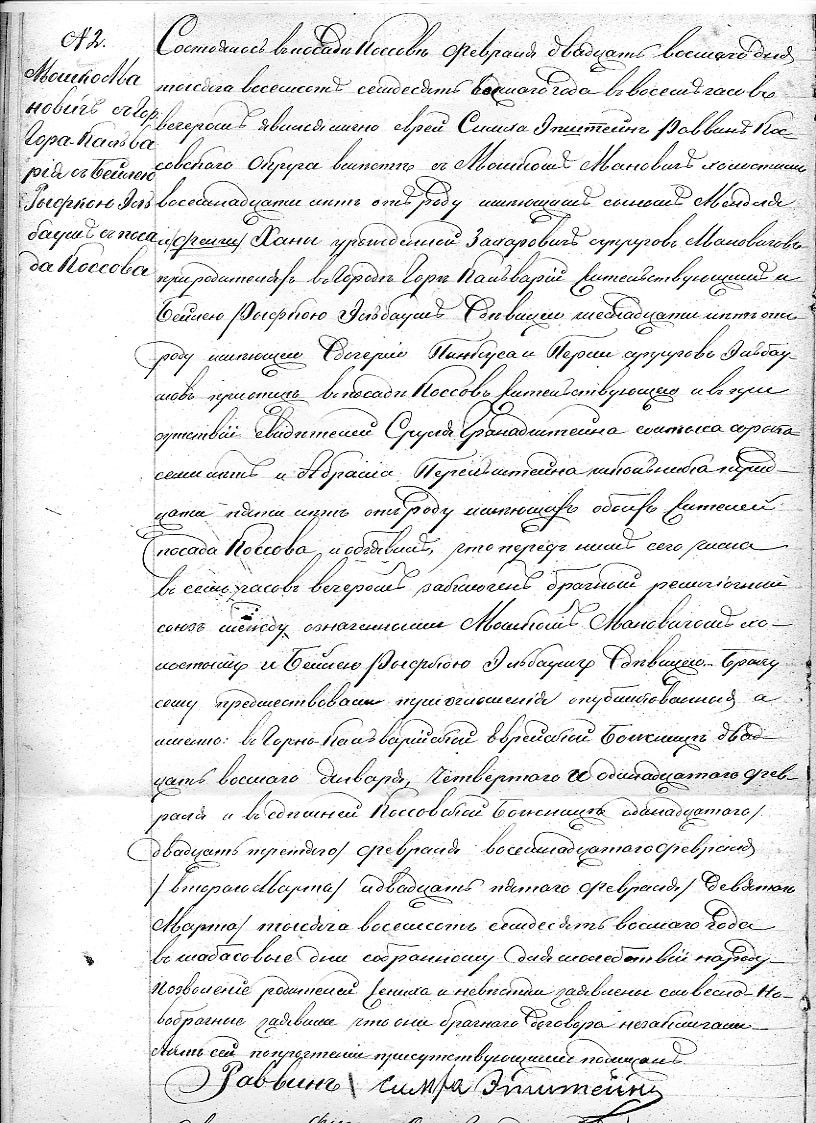 № 2.
Мошко Ма
новичъ с гор
Гора-Калева
рія съ Бейлею
Рыфкою Эль
баумъ с поса
да Коссова
Состоялось в посадѣ Коссовѣ февраля двадцать восмаго дня
тысяча восемсотъ семдесятъ восмаго года въ восемь часовъ
вечеромъ явился лично еврей Симха Эпштейнъ Раввинъ Кос-
совскаго Округа вмѣстѣ съ Мошкомъ Мановичъ холостымъ
восемнадцати лѣтъ отъ роду имѣющимъ сыномъ Менделя
и Ханы урожденной Захаровичъ супруговъ Мановичовъ
при родителяхъ в городѣ Горѣ Кальваріи жительствующимъ и
Бейлею Рыфкою Эльбаумъ дѣвицею шестнадцати лѣтъ отъ
роду имѣющею дочерію Пинкуса и Перли супруговъ Эльбау-
мовъ при отцѣ в посадѣ Коссовѣ жительствующею и въ при
сутствіи свидѣтелей Сруля Гранадштейна сорока
семи лѣтъ и Абрама Перельштейна школьника трид-
цати пяти лѣтъ отъ роду имѣющихъ обоихъ жителей
посада Коссова и объявилъ, что передъ нимъ сего числа
въ семь часовъ вечеромъ заключенъ брачный религіозный
союзъ между означенными Мошкомъ Мановичомъ хо-
лостымъ и Бейлею Рыфкою Эльбаумъ дѣвицею. Браку
сему предшествовали три оглашенія опубликованныя а
именно: в Горно-Кальварійской Еврейской Божницѣ двад-
цать восмаго Января, четвертаго и одинадцатаго фев-
раля и въ здѣшней Коссовской Божницѣ одинадцатаго/
двадцать третьяго/ февраля восемнадцатаго февраля
/втораго Марта/ и двадцать пятаго февраля/ девятаго
Марта/ тысяча восемсотъ семдесятъ восмаго года
въ шабасовые дни собранному для молебствій народу
Позволеніе родителей жениха и невѣсты заявлены словесно. Но-
вобрачные заявили что они брачнаго договора незаключали
Актъ сей по прочтеніи присутствующимъ подписанъ
Раввинъ Симха Эпштейнъ